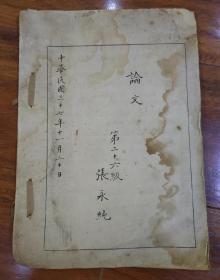 論文
第二十六級
張永純
中華民國三十七年十一月二十日